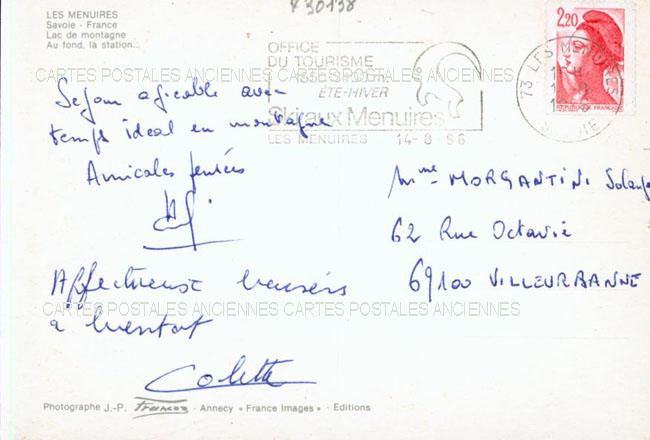 LES MENUIRES
Savoie - France
Lac de montagne
Au fond, la station...
430138
OFFICE
DU TOURISME
ÉTÉ-HIVER
Ski aux Menuires
LES MENUIRES 14-8-86
2,20
73 LES MENUIRES
CARTES POSTALES ANCIENNES CARTES POSTALES ANCIENNES
Sejour agréable avec
temps idéal en montagne
Amicales pensées
Mme MORGANTINI Solange
62 Rue Octavie
69100 VILLEURBANNE
Affectueux baisers
CARTES POSTALES ANCIENNES CARTES POSTALES ANCIENNES
à bientot
Colette
Photographe J.-P. - Annecy « France Images » - Editions